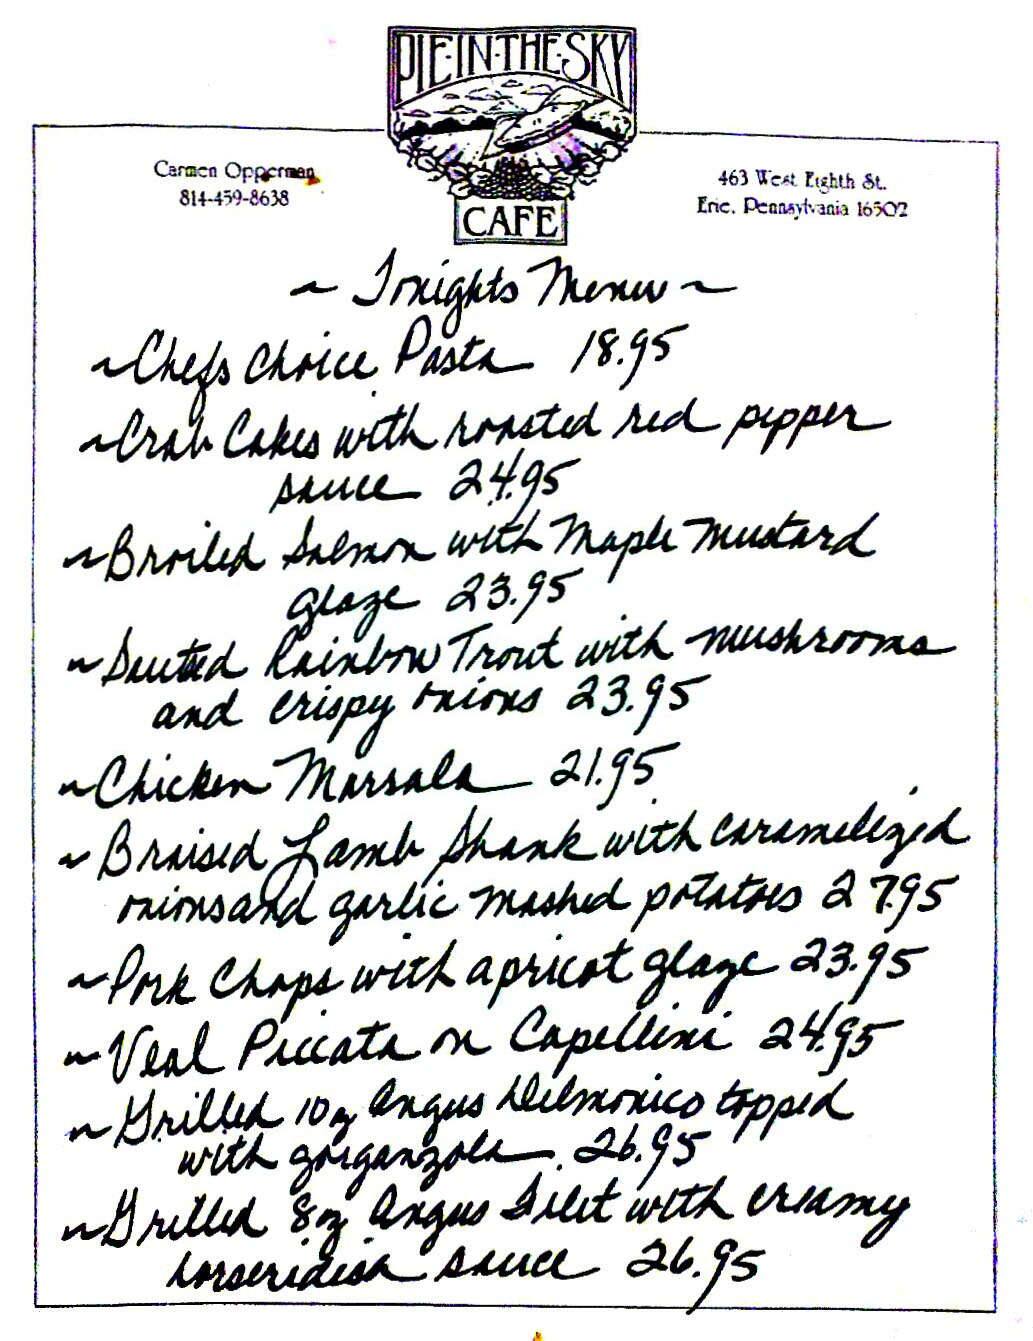 PIE·IN·THE·SKY
CAFE
Carmen Opperman
814-459-8638
463 West Eighth St.
Erie, Pennsylvania 16502
~ Tonights Menu ~
~Chefs Choice Pasta 18.95
~Crab Cakes with roasted red pepper
sauce 24.95
~Broiled Salmon with Maple Mustard
glaze 23.95
~Sauteed Rainbow Trout with mushrooms
and crispy onions 23.95
~Chicken Marsala 21.95
~Braised Lamb Shank with caramelized
onions and garlic mashed potatoes 27.95
~Pork Chops with apricot glaze 23.95
~Veal Piccata on Capellini 24.95
~Grilled 10 oz Angus Delmonico topped
with gorganzola 26.95
~Grilled 8 oz Angus Filet with creamy
horseradish sauce 26.95